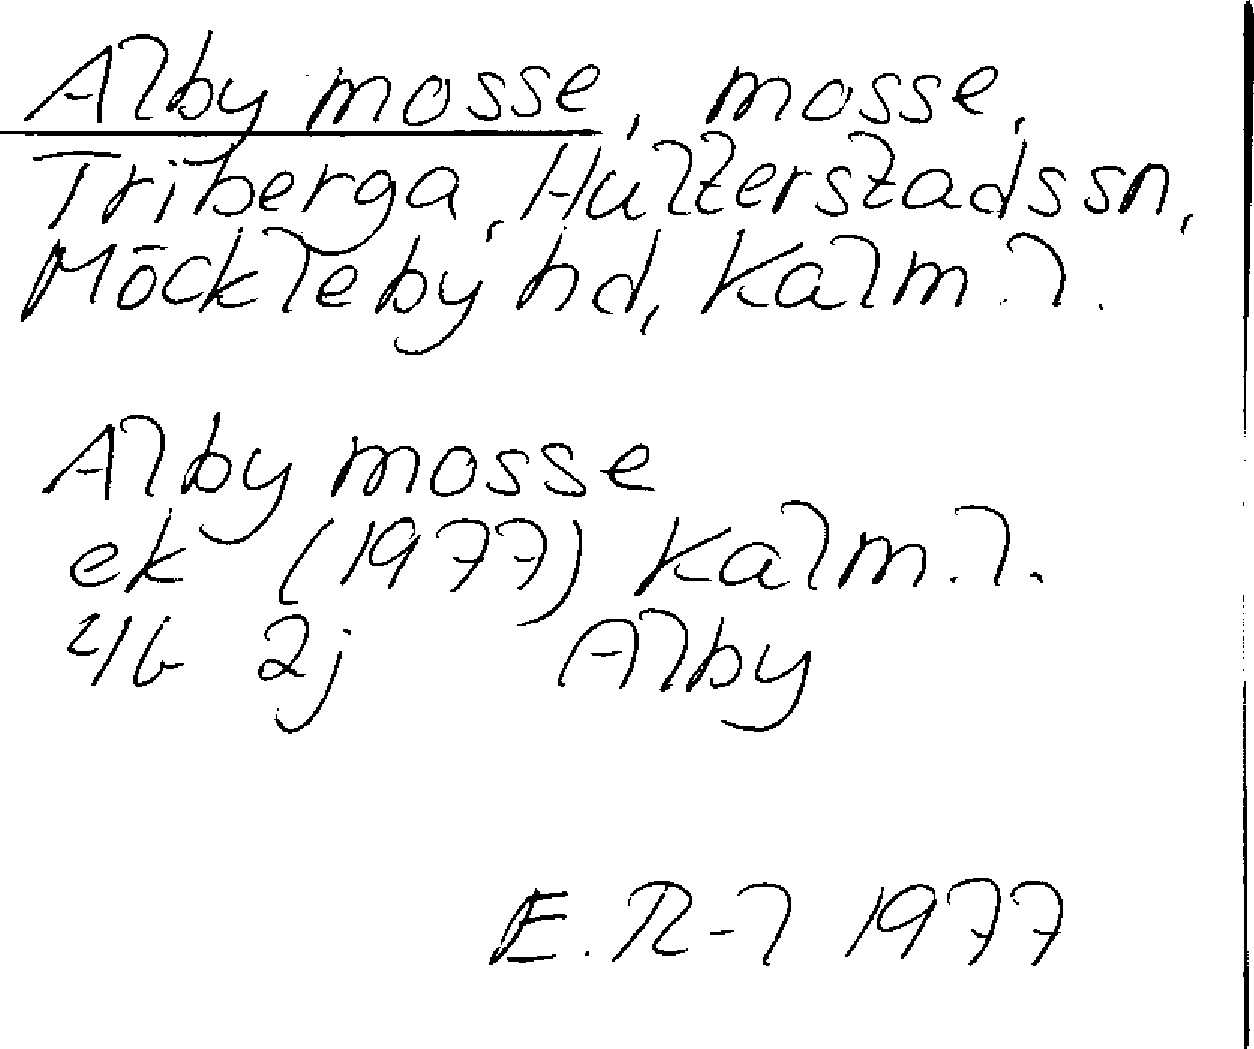 Alby mosse, mosse,
Triberga, Hulterstads sn,
Möckleby hd, Kalm. l.
Alby mosse
ek (1977) Kalm. l.
4/6 2j Alby
E. R-l 1977